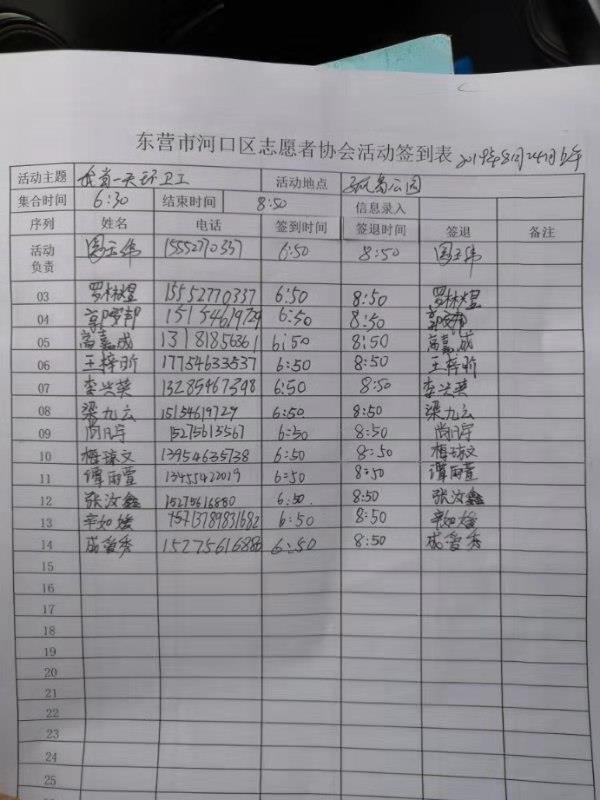 东营市河口区志愿者协会活动签到表 2019年8月24日上午
活动主题 我当一天环卫工 活动地点 孤岛公园
集合时间 6:30 结束时间 8:50 信息录入
序列 姓名 电话 签到时间 签退时间 签退 备注
活动负责 周玉纬 15552770337 6:50 8:50 周玉纬
03 罗林煜 15552770337 6:50 8:50 罗林煜
04 15154619729 6:50 8:50
05 高嘉成 13181856361 6:50 8:50 高嘉成
06 王梓昕 17754633537 6:50 8:50 王梓昕
07 李兴英 13285467398 6:50 8:50 李兴英
08 梁九云 15154619729 6:50 8:50 梁九云
09 尚凡宇 15275613567 6:50 8:50 尚凡宇
10 13954635738 6:50 8:50
11 谭雨萱 13455422019 6:50 8:50 谭雨萱
12 张汶鑫 15275616880 6:50 8:50 张汶鑫
13 辛如媛 6:50 8:50 辛如媛
14 成鲁秀 6:50 8:50 成鲁秀
15
16
17
18
19
20
21
22
23
24
25